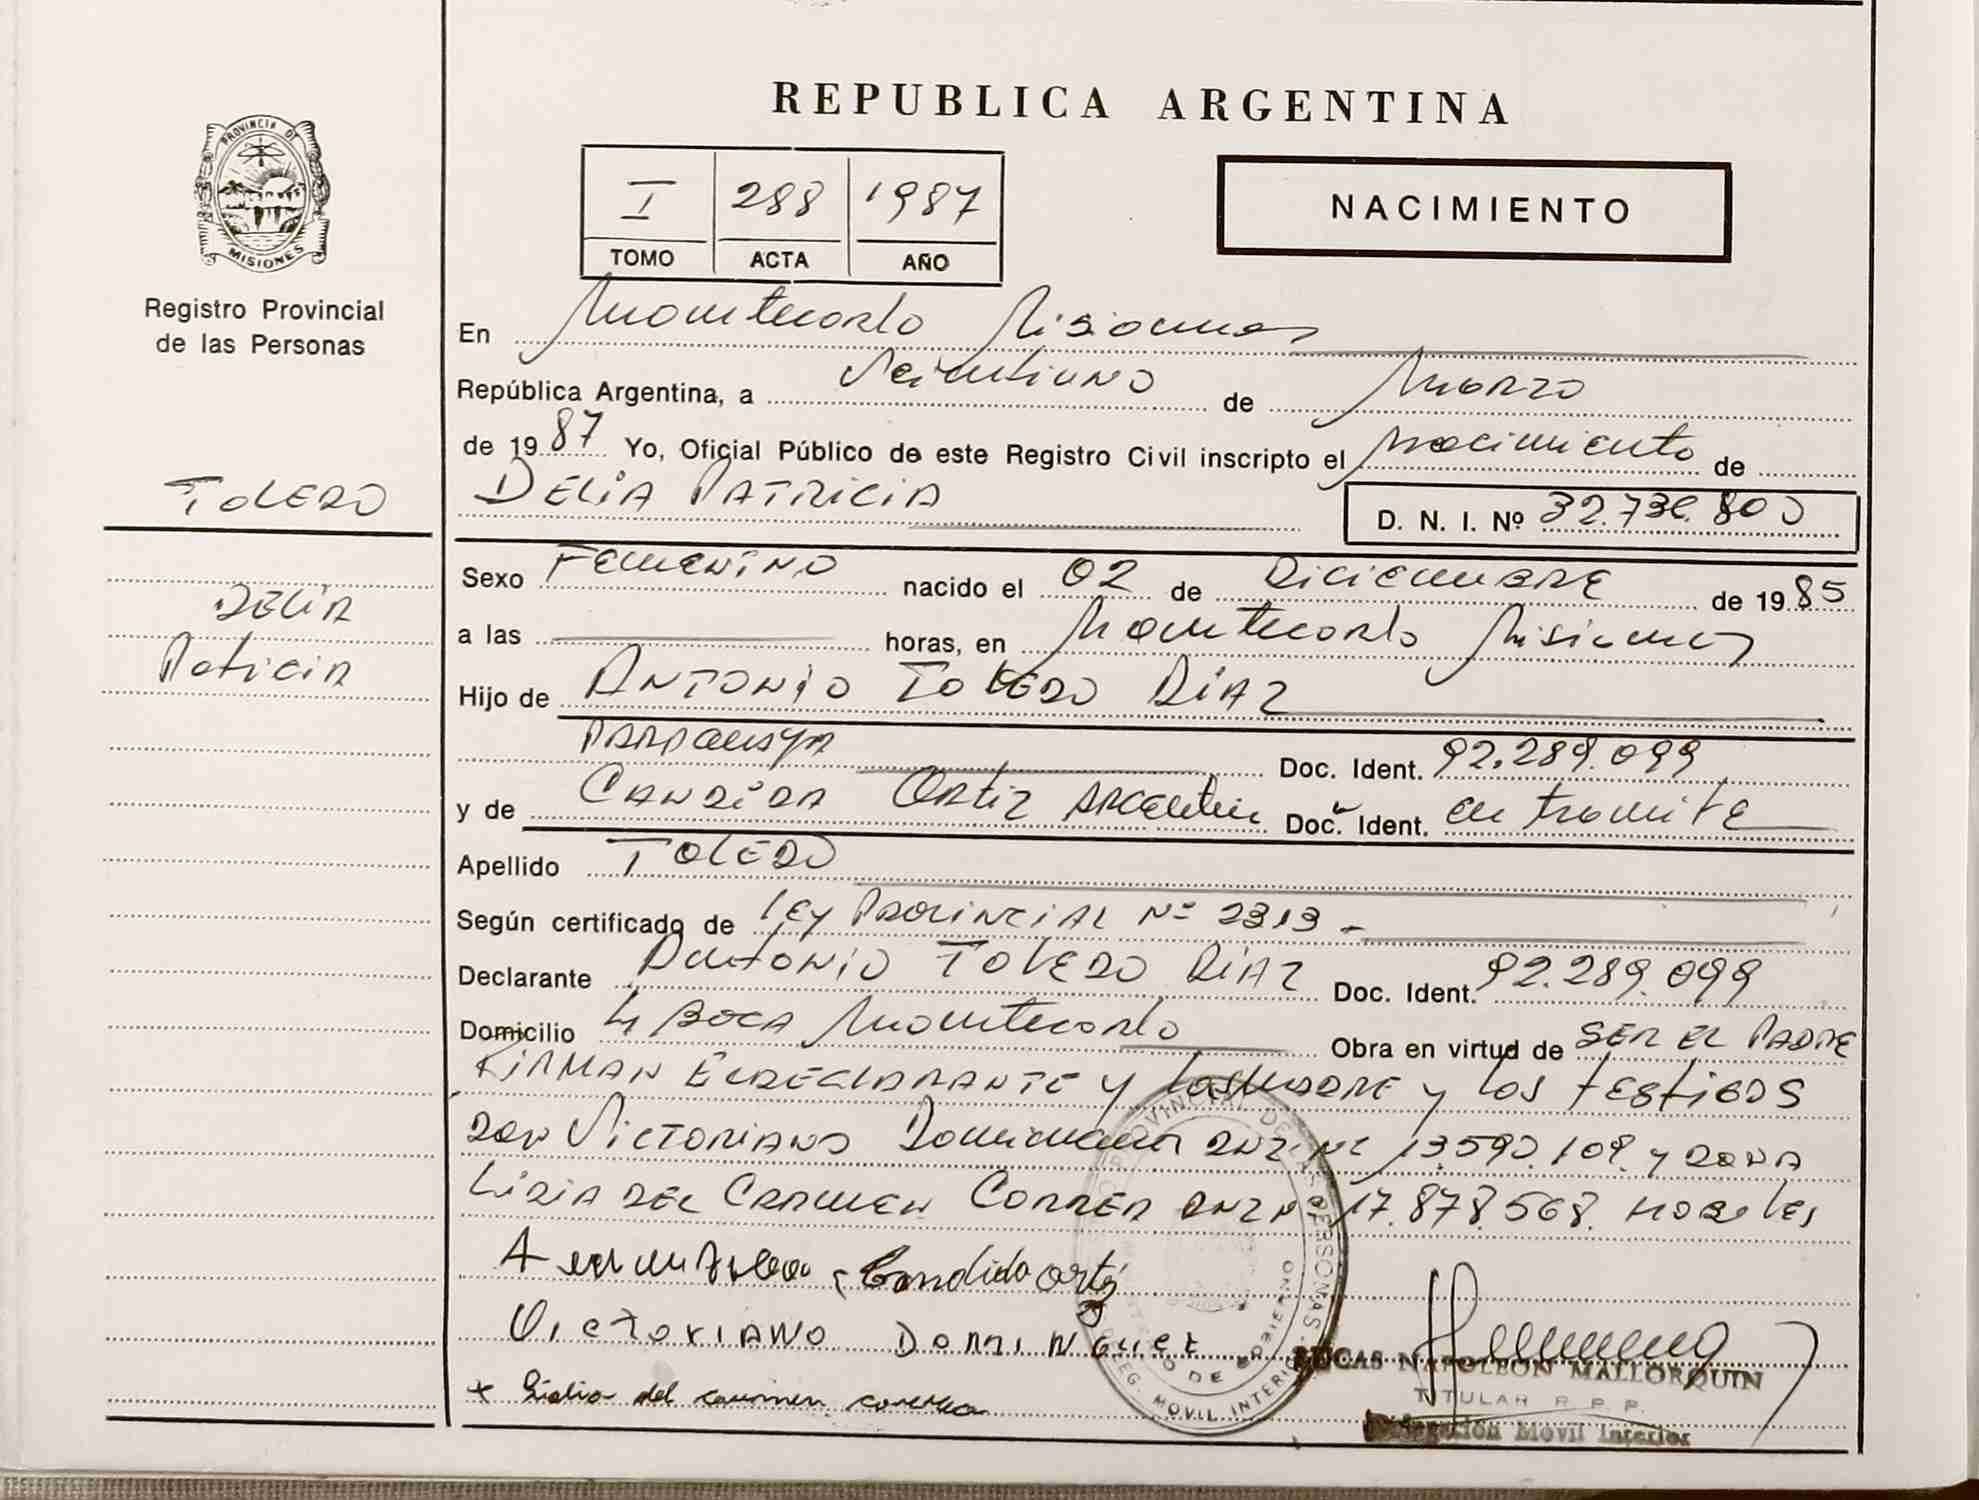 REPUBLICA ARGENTINA
PROVINCIA DE
MISIONES
Registro Provincial
de las Personas
I 288 1987
TOMO ACTA AÑO
NACIMIENTO
En Montecarlo Misiones
República Argentina, a Veintiuno de Marzo
de 1987 Yo, Oficial Público de este Registro Civil inscripto el Nacimiento de
TOLEDO
DELIA PATRICIA D. N. I. Nº 32.730.800
Sexo Femenino nacido el 02 de Diciembre de 1985
DELIA
Patricia
a las horas, en Montecarlo Misiones
Hijo de ANTONIO TOLEDO DIAZ
Doc. Ident. 92.289.099
y de CANDIDA ORTIZ Doc. Ident. en tramite
Apellido TOLEDO
Según certificado de Ley PROVINCIAL Nº 2313 -
Declarante Antonio TOLEDO DIAZ Doc. Ident. 92.289.099
Domicilio BOCA Montecarlo Obra en virtud de SER EL PADRE
FIRMAN EL DECLARANTE y LA MADRE y LOS TESTIGOS
DON VICTORIANO 13.590.109 y DOÑA
LIDIA DEL CARMEN CORREA 17.878.568
Candida ortiz
VICTORIANO DOMINGUEZ
Lidia del carmen correa
LUCAS NAPOLEON MALLORQUIN
TITULAR R. P. P.
Delegación Movil Interior